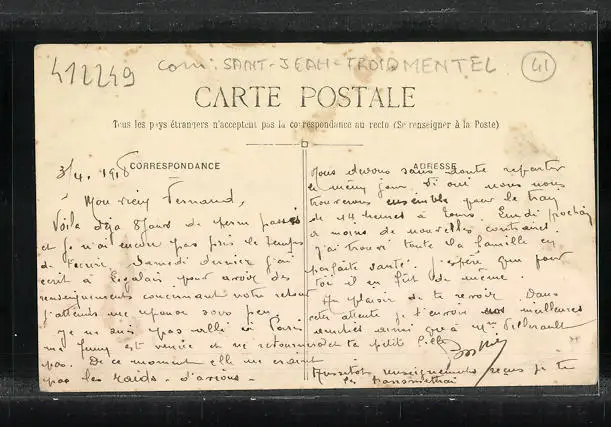 412249
com: SAINT-JEAN-FROIDMENTEL
41
CARTE POSTALE
Tous les pays étrangers n'acceptent pas la correspondance au recto (Se renseigner à la Poste)
CORRESPONDANCE
3/4. 1918
Mon vieux Fernand,
Voilà déjà 8 jours de perm passés
et je n'ai encore pas pris le temps
de t'écrire. Samedi dernier j'ai
écrit à pour avoir des
renseignements concernant votre retour
j'attends une réponse sous peu.
Je ne suis pas allé à Paris
ma est venue et ne retournera
pas. De ce moment elle me craint
pas les raids d'avions.
ADRESSE
Nous devons sans doute repartir
le même jour. Si oui nous nous
trouverons ensemble pour le train
de 14 heures à Tours. Lundi prochain
à moins de nouvelles contraires.
J'ai trouvé toute la famille en
parfaite santé. J'espère que pour
toi il en fut de même.
Au plaisir de te revoir. Dans
cette attente je t'envoie meilleures
amitiés ainsi qu'à Mme
et ta petite fille
Aussitôt renseignements reçus je te
les transmettrai